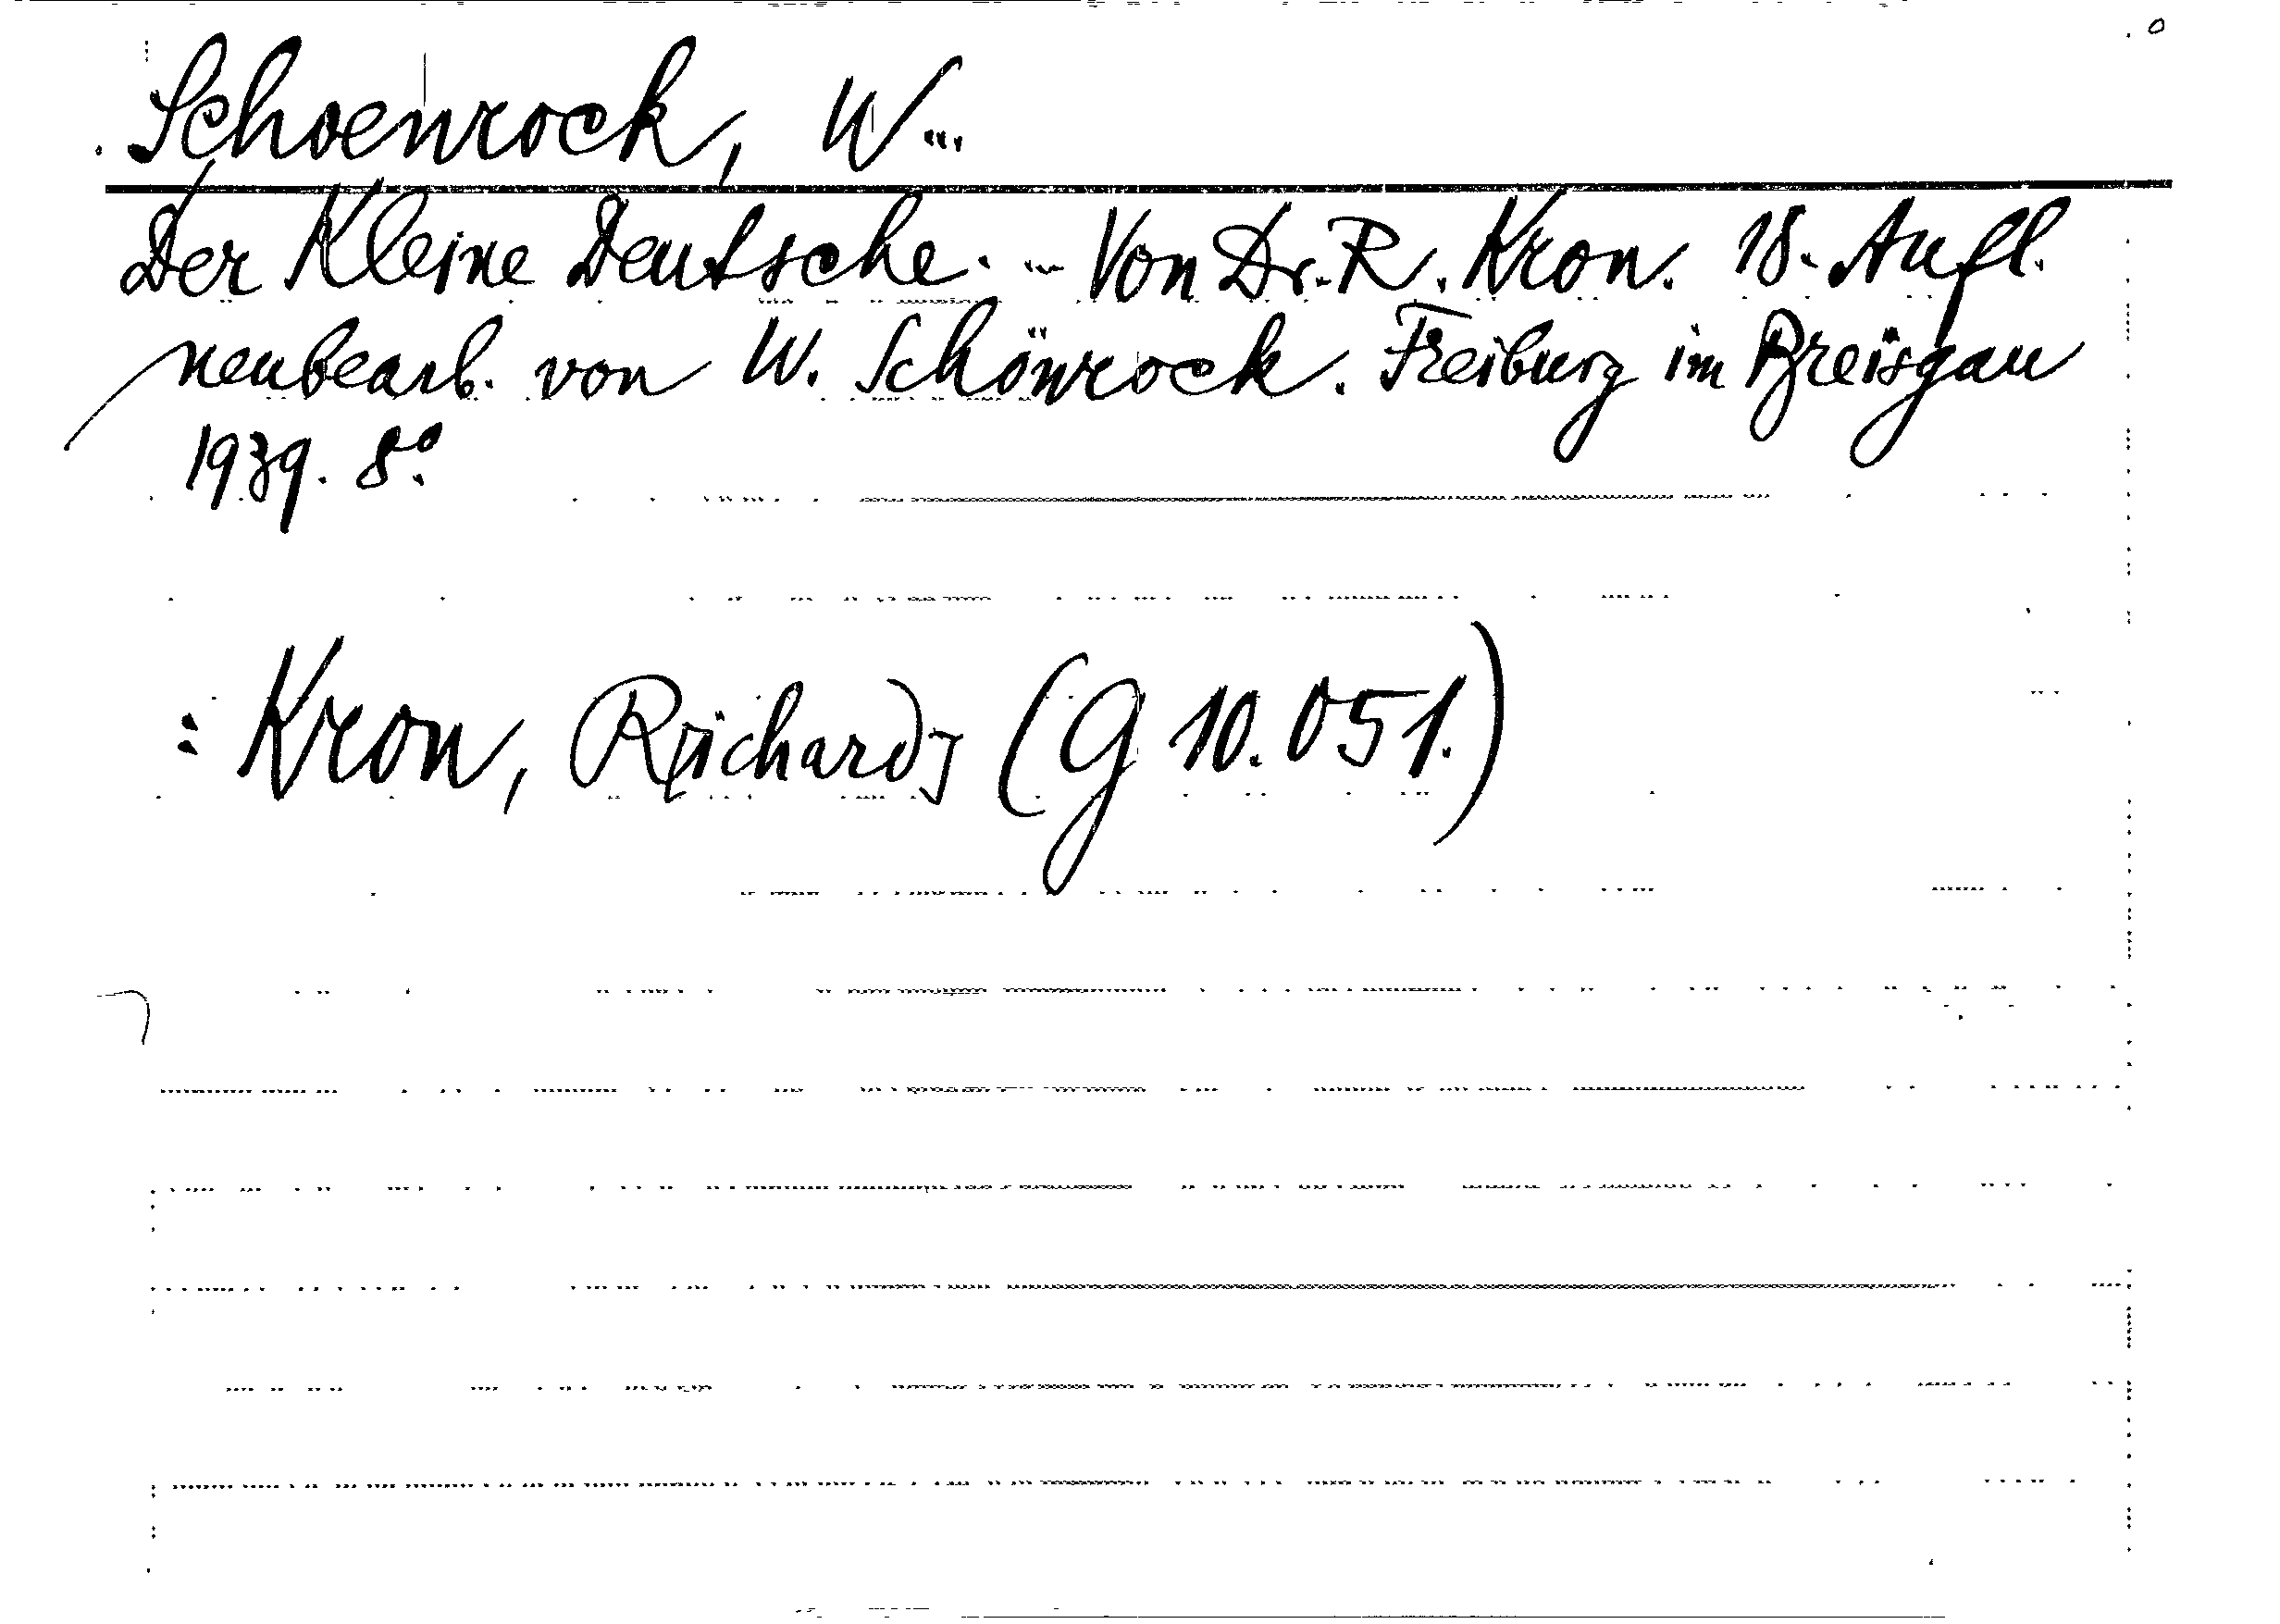 Schoenrock, W...
Der Kleine Deutsche. ... Von Dr. R. Kron. 18. Aufl.
neubearb. von W. Schönrock. Freiburg im Breisgau
1939. 8°.
: Kron, Richard, (G 10.051.)